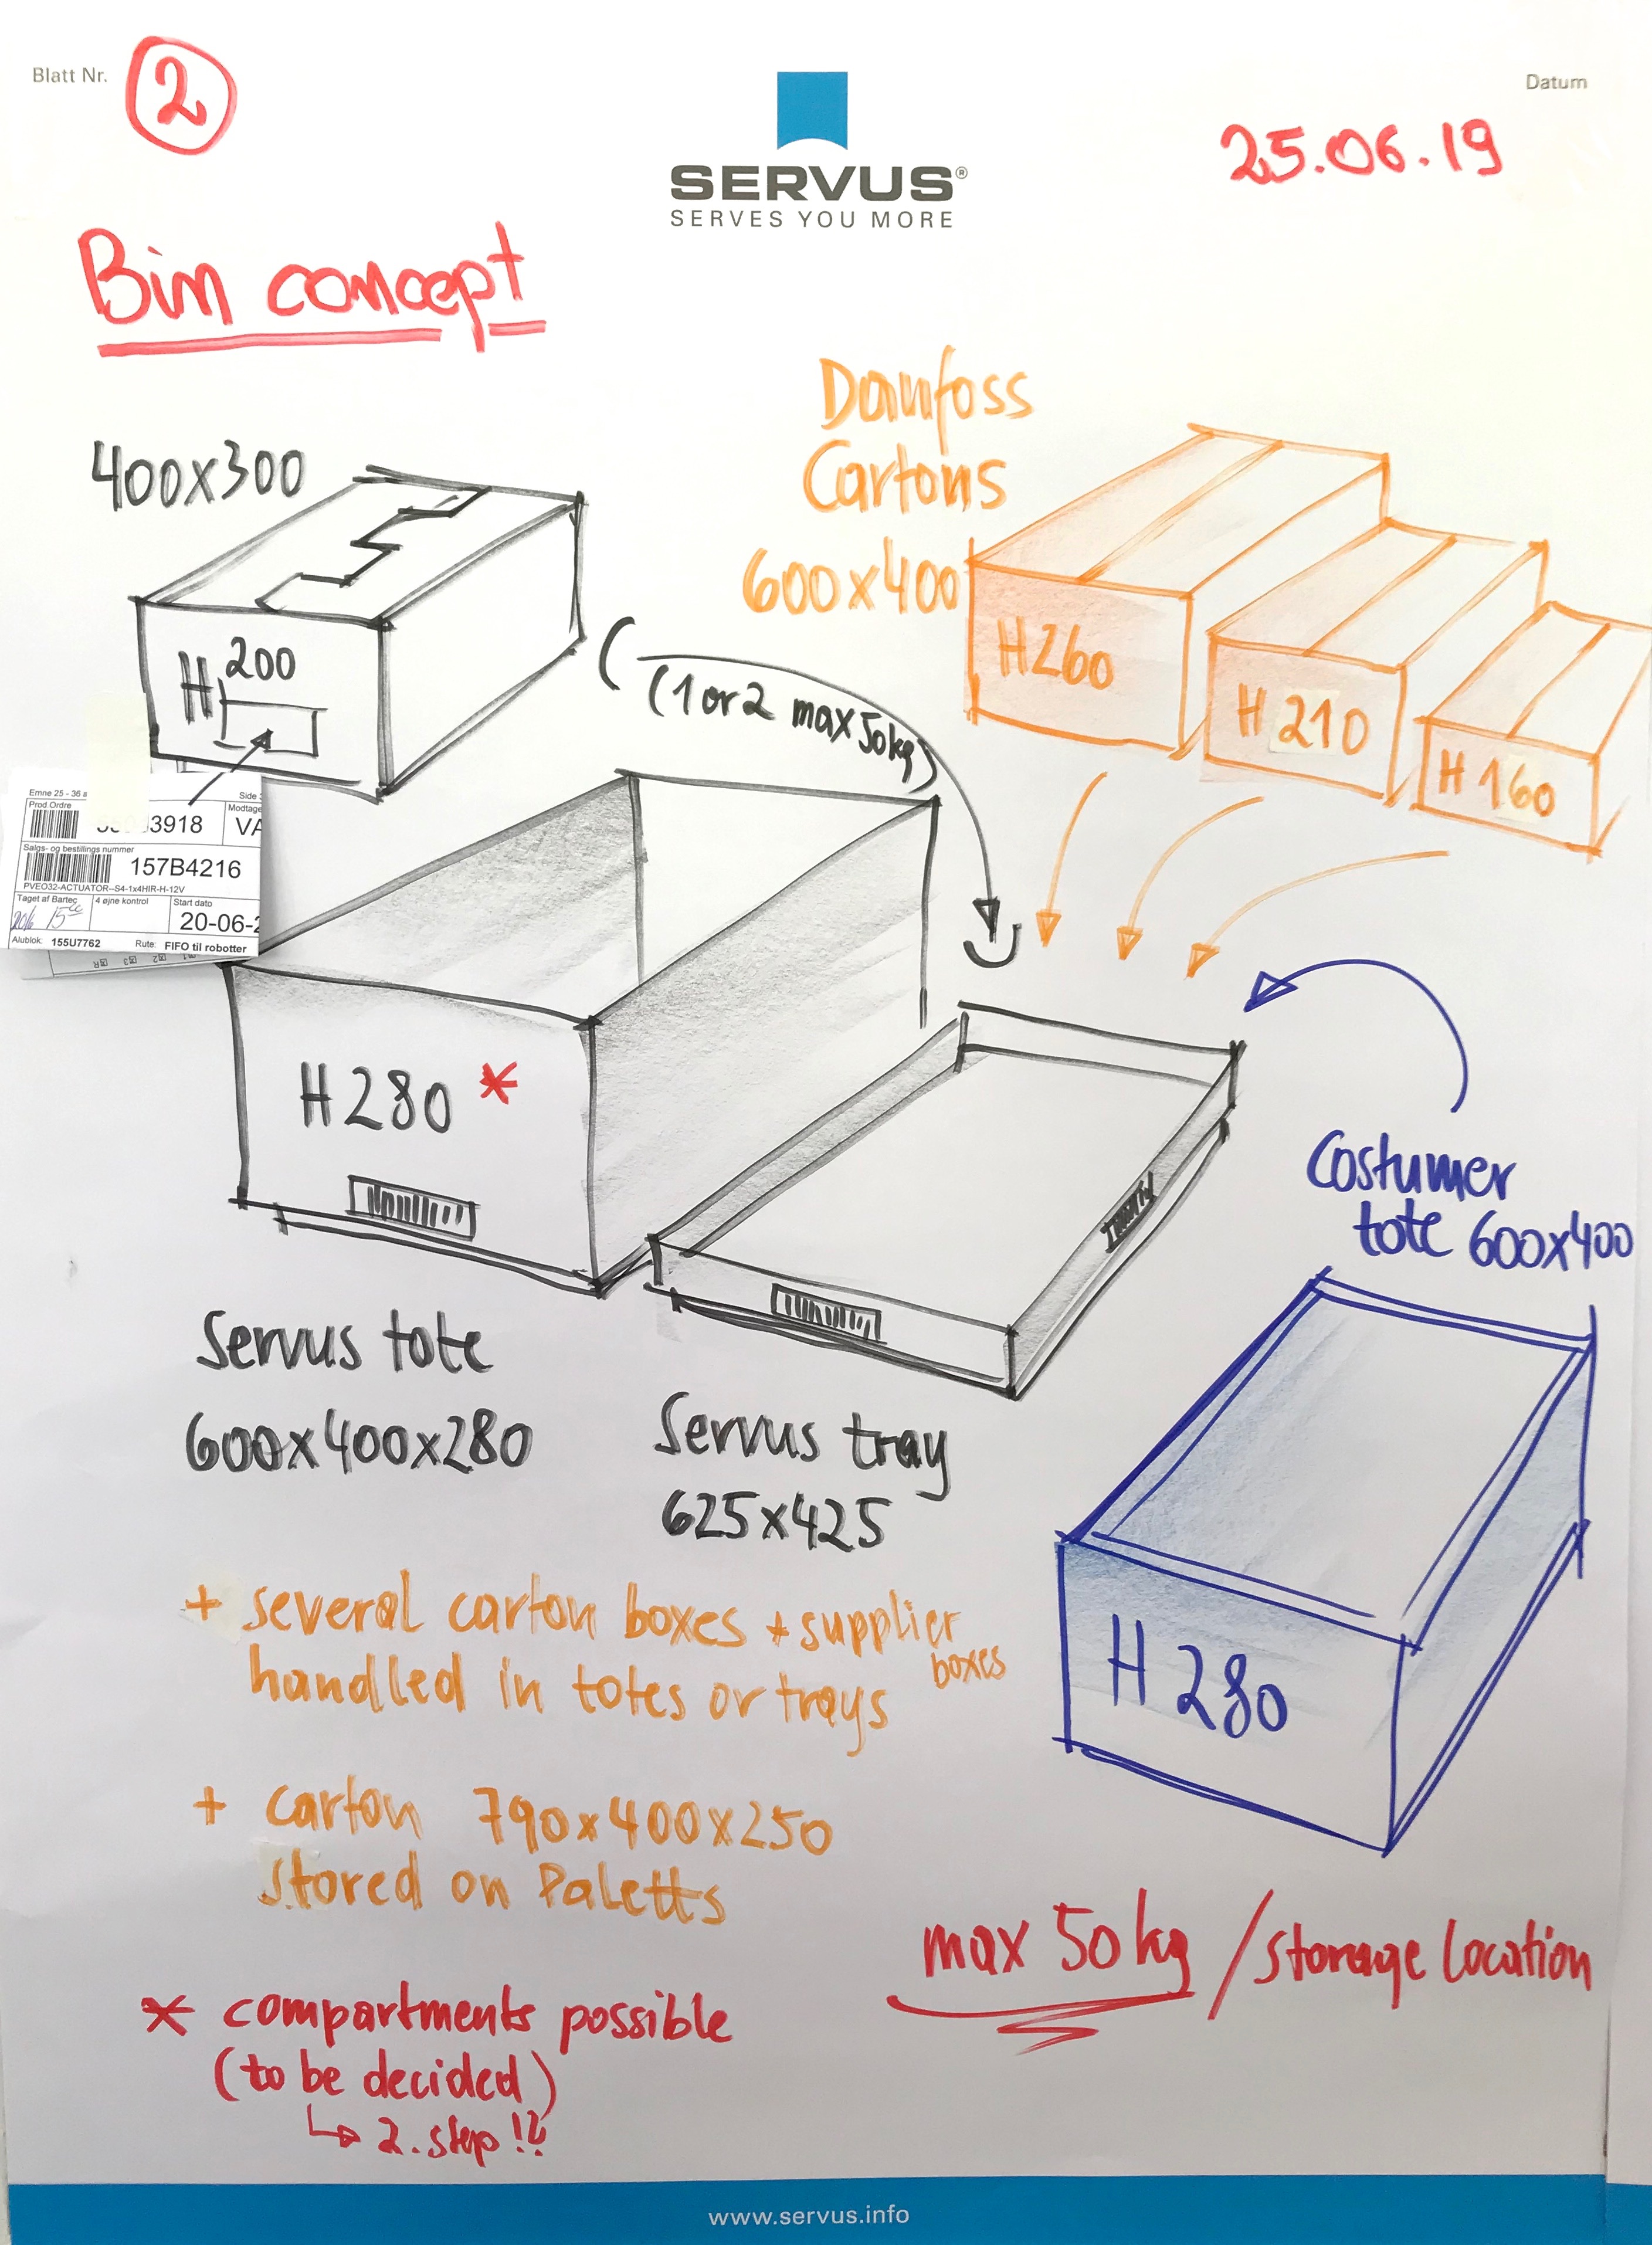 Blatt Nr.
2
Datum
25.06.19
SERVUS®
SERVES YOU MORE
Bin concept
400x300
H 200
Danfoss
Cartons
600x400
H260
H 210
H 160
(1 or 2 max 50kg)
Emne 25 - 36
Side
Prod Ordre
3918
Modtage
VA
Salgs- og bestillings nummer
157B4216
PVEO32-ACTUATOR--S4-1x4HIR-H-12V
Taget af Bartec
4 øjne kontrol
Start dato
20-06-2
Alublok: 155U7762
Rute: FIFO til robotter
H 280 *
Costumer
tote 600x400
H 280
Servus tote
600x400x280
Servus tray
625x425
+ several carton boxes + supplier
boxes
handled in totes or trays
+ carton 790x400x250
stored on Paletts
max 50kg / storage location
* compartments possible
(to be decided)
↳ 2. step !!
www.servus.info